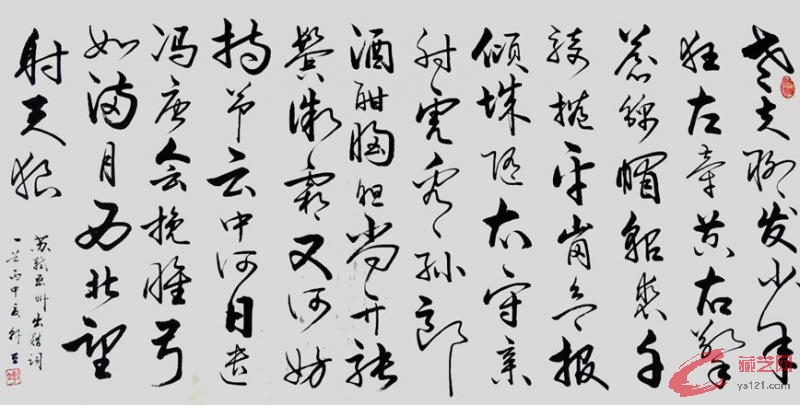 老夫聊发少年
狂左牵黄右擎
苍锦帽貂裘千
骑捲平岗为报
倾城随太守亲
射虎看孙郎
酒酣胸胆尚开张
鬓微霜又何妨
持节云中何日遣
冯唐会挽雕弓
如满月西北望
射天狼
苏轼密州出猎词
丙申
藏艺网
ys121.com